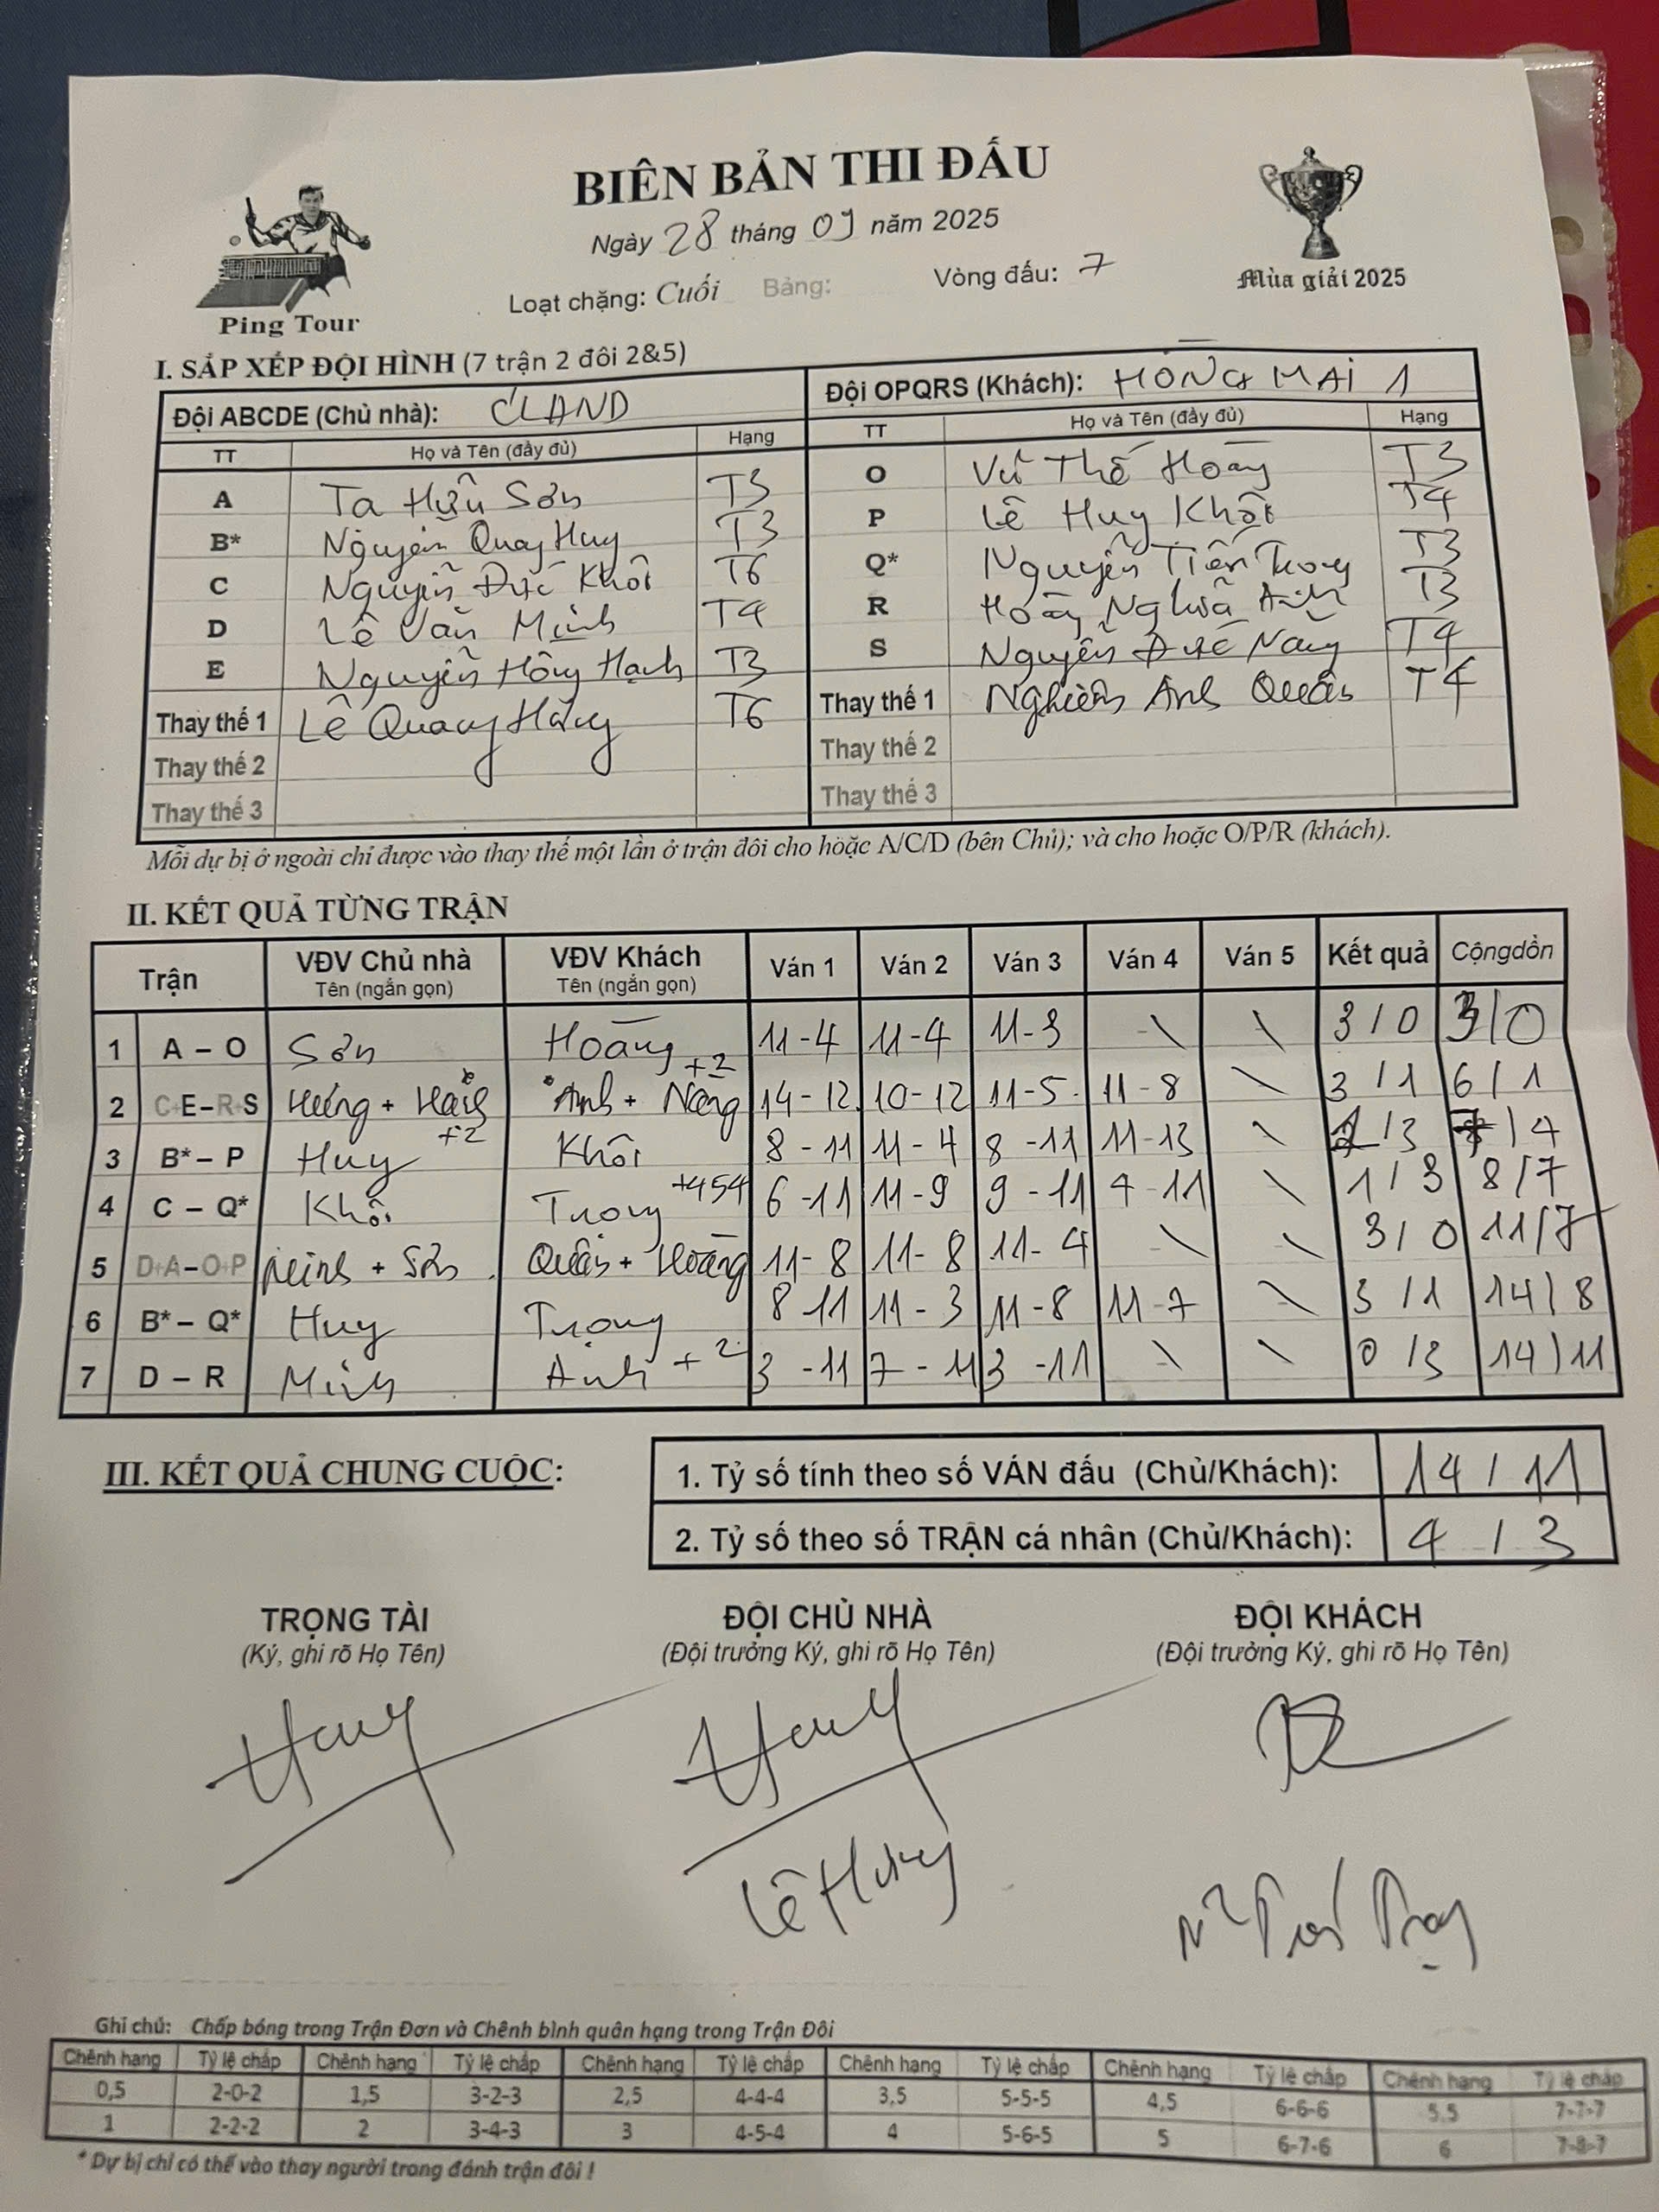 BIÊN BẢN THI ĐẤU
Ngày 28 tháng 09 năm 2025
Loạt chặng: Cuối Bảng: Vòng đấu: 7
Ping Tour
Mùa giải 2025
I. SẮP XẾP ĐỘI HÌNH (7 trận 2 đôi 2&5)
Đội ABCDE (Chủ nhà): CLAND Đội OPQRS (Khách): HOÀNG MAI 1
TT Họ và Tên (đầy đủ) Hạng TT Họ và Tên (đầy đủ) Hạng
A Tạ Hữu Sơn T3 O Vũ Thế Hoàng T3
B* Nguyễn Quang Huy T3 P Lê Huy Khôi T4
C Nguyễn Đức Khôi T6 Q* Nguyễn Tiến Trọng T3
D Lê Văn Minh T4 R Hoàng Nghĩa Anh T3
E Nguyễn Hồng Hạnh T3 S Nguyễn Đức Năng T4
Thay thế 1 Lê Quang Hưng T6 Thay thế 1 Nghiêm Anh Quân T4
Thay thế 2 Thay thế 2
Thay thế 3 Thay thế 3
Mỗi dự bị ở ngoài chỉ được vào thay thế một lần ở trận đôi cho hoặc A/C/D (bên Chủ); và cho hoặc O/P/R (khách).
II. KẾT QUẢ TỪNG TRẬN
Trận VĐV Chủ nhà Tên (ngắn gọn) VĐV Khách Tên (ngắn gọn) Ván 1 Ván 2 Ván 3 Ván 4 Ván 5 Kết quả Cộngdồn
1 A – O Sơn Hoàng 11-4 11-4 11-3 \ \ 3/0 3/0
2 C+E–R+S Hưng + Hạnh Anh + Năng +2 14-12 10-12 11-5 11-8 \ 3/1 6/1
3 B* – P Huy +2 Khôi 8-11 11-4 8-11 11-13 \ 1/3 7/4
4 C – Q* Khôi Trọng +454 6-11 11-9 9-11 7-11 \ 1/3 8/7
5 D+A–O+P Minh + Sơn Quân + Hoàng 11-8 11-8 11-4 \ \ 3/0 11/7
6 B* – Q* Huy Trọng 8-11 11-3 11-8 11-7 \ 3/1 14/8
7 D – R Minh Anh +2 3-11 7-11 3-11 \ \ 0/3 14/11
III. KẾT QUẢ CHUNG CUỘC:
1. Tỷ số tính theo số VÁN đấu (Chủ/Khách): 14/11
2. Tỷ số theo số TRẬN cá nhân (Chủ/Khách): 4/3
TRỌNG TÀI ĐỘI CHỦ NHÀ ĐỘI KHÁCH
(Ký, ghi rõ Họ Tên) (Đội trưởng Ký, ghi rõ Họ Tên) (Đội trưởng Ký, ghi rõ Họ Tên)
Huy Huy
Lê Hưng
Ghi chú: Chấp bóng trong Trận Đơn và Chênh bình quân hạng trong Trận Đôi
Chênh hạng Tỷ lệ chấp Chênh hạng Tỷ lệ chấp Chênh hạng Tỷ lệ chấp Chênh hạng Tỷ lệ chấp Chênh hạng Tỷ lệ chấp Chênh hạng Tỷ lệ chấp
0,5 2-0-2 1,5 3-2-3 2,5 4-4-4 3,5 5-5-5 4,5 6-6-6 5,5 7-7-7
1 2-2-2 2 3-4-3 3 4-5-4 4 5-6-5 5 6-7-6 6 7-8-7
* Dự bị chỉ có thể vào thay người trong đánh trận đôi !